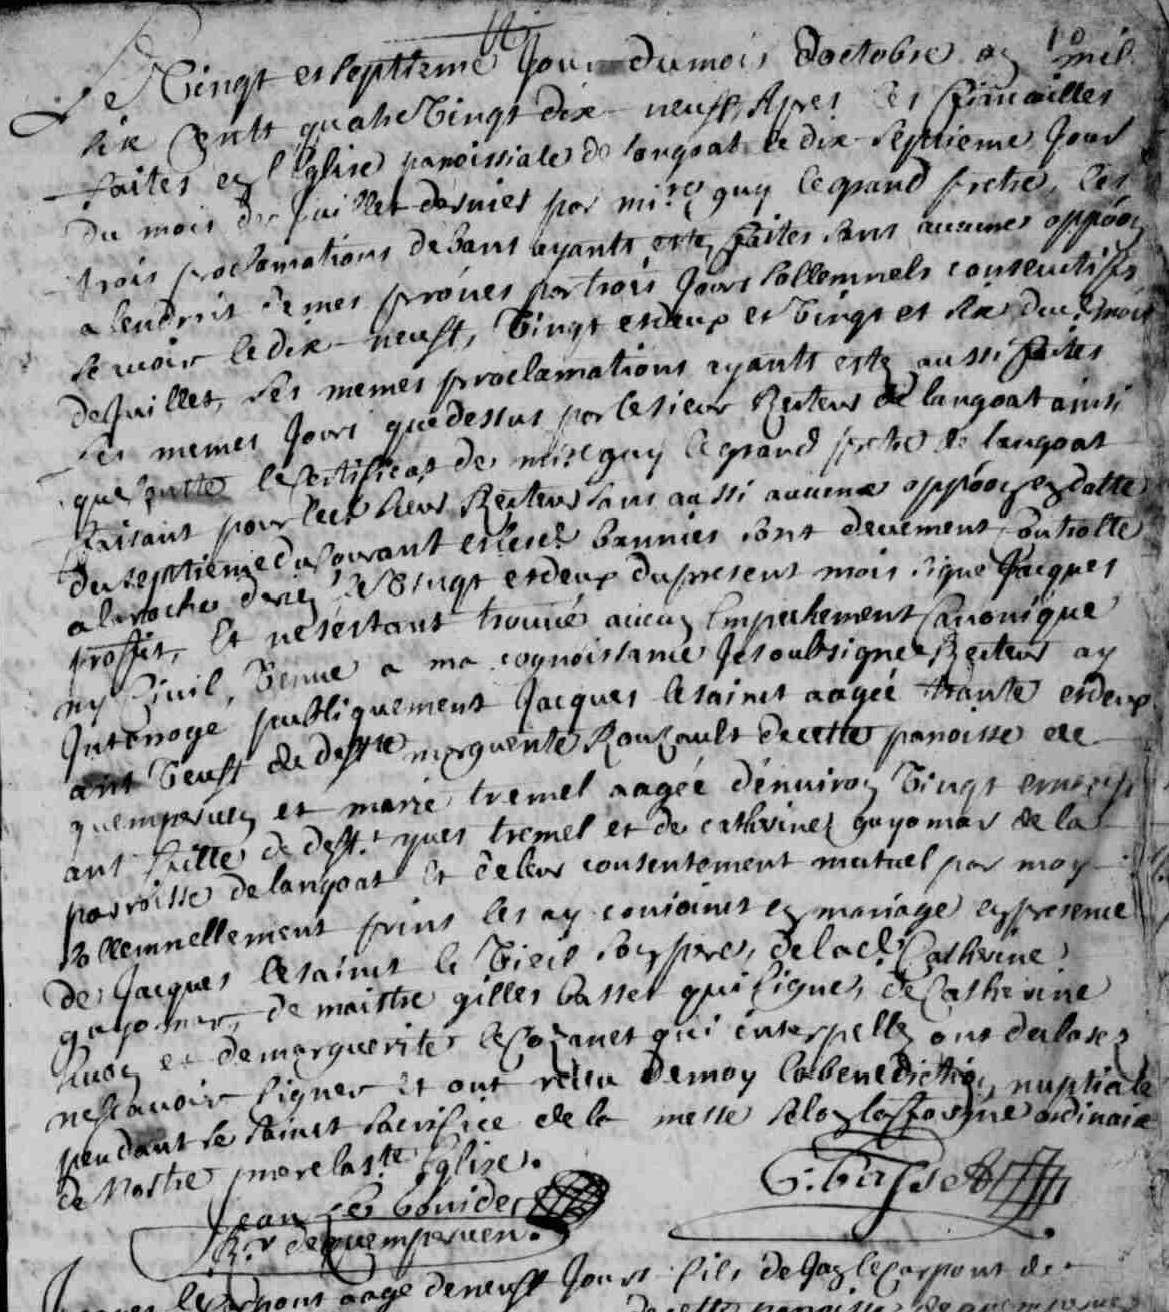 Le Vingt et septieme Jour du mois d'octobre mil
six cents quatre Vingt dix neuff, Apres les fiencailles
faites en l'Eglise paroissiale de langoat le dix septieme Jour
du mois de Juillet dernier par mire guy le grand pretre, les
trois proclamations de bans ayants estez faites sans aucunes oppóon
a lendroit de mes prónes par trois Jours sollemnels consecutifs
scavoir le dix neuff, Vingt et deux et Vingt et six du mois
de Juillet, les memes proclamations ayants estez aussi faites
les memes Jours que dessus par le sieur Recteur de langoat ainsi
que le certificat de mire guy le grand pretre de langoat
faisant pour ledt sieur Recteur sans aussi aucune oppóon en datte
du septieme du courant et lesd. bannies sont deuement controlle
a la roche derien le Vingt et deux du present mois signe Jacques
proffit, Et ne s'estant trouué aucun Empechement Canonique
ny Civil, Venue a ma cognoissance Je soubsigne Recteur ay
Interroge publiquement Jacques le saint aagée trante et deux
ans Veuff de deffte marguerite Rouzault de cette paroisse de
quempervez et marie tremel aagée d'enuiron Vingt et neuff
ans fille de defft yues tremel et de catherine guyomar de la
parroisse de langoat Et de leur consentement mutuel par moy
sollemnellement prins les ay conioinct en mariage en presence
de Jacques le saint le Vieil son pere, de lad. Catherine
guyomar, de maistre gilles basset qui signe, de Catherine
et de marguerite qui interpellez ont declarez
ne scauoir signer Et ont receu de moy la benediction nuptiale
pendant le saint sacrifice de la messe selon la forme ordinaire
de Nostre mere la ste Eglise.
G: Basset
Jean Le
Rr de quemperven.
aage de neuff Jours fils de Jan de
de cette paroisse